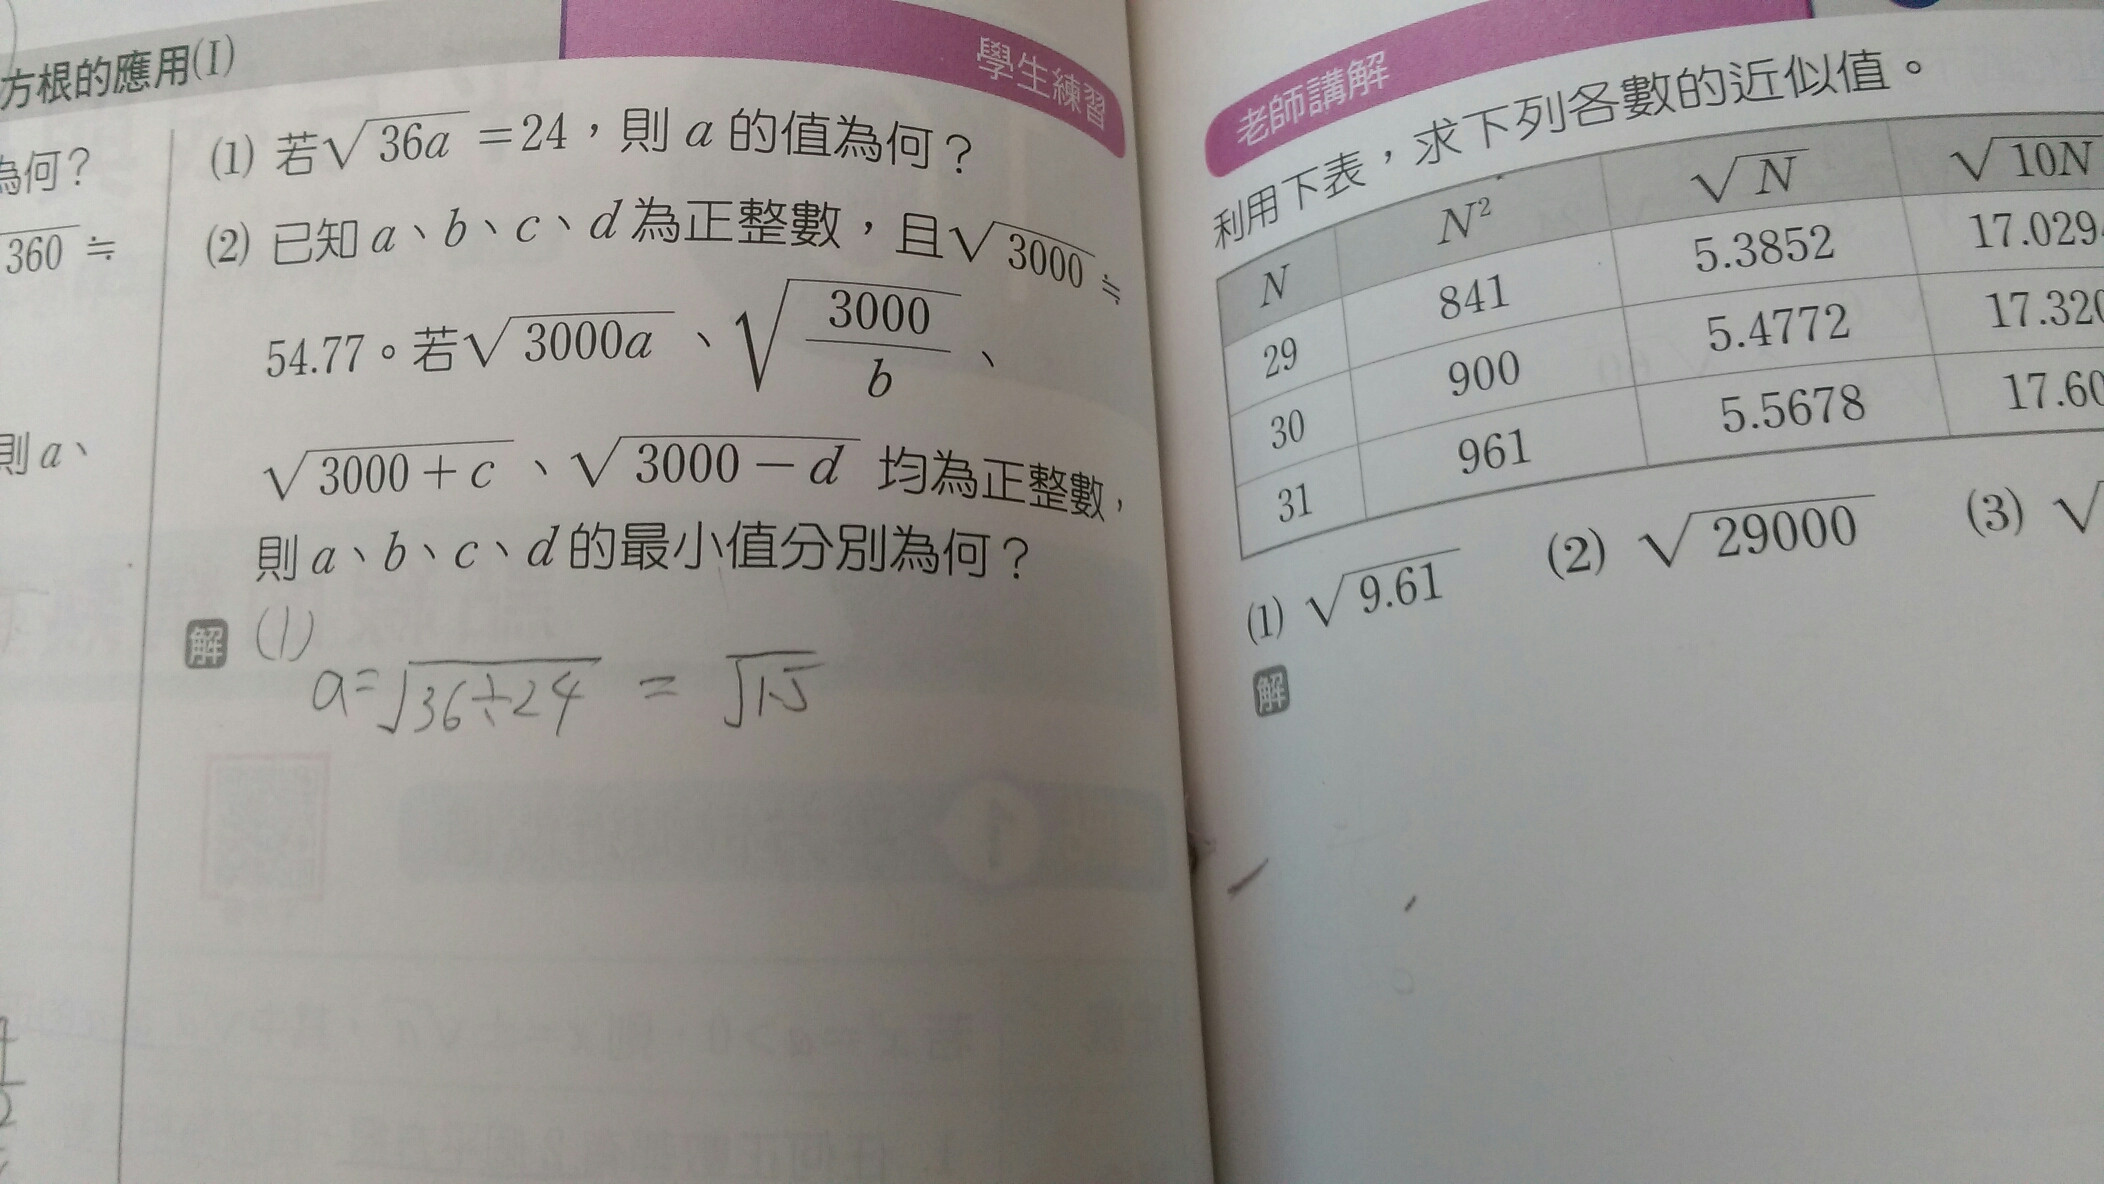 方根的應用(I)
學生練習
為何?
360 ≒
則 a、
(1) 若√36a =24,則 a 的值為何?
(2) 已知 a、b、c、d 為正整數,且√3000 ≒
54.77。若√3000a 、√(3000/b) 、
√3000+c 、√3000-d 均為正整數,
則 a、b、c、d 的最小值分別為何?
解 (1)
a=√36÷24 = √1.5
老師講解
利用下表,求下列各數的近似值。
N N² √N √10N
29 841 5.3852 17.029
30 900 5.4772 17.320
31 961 5.5678 17.60
(1) √9.61 (2) √29000 (3) √
解